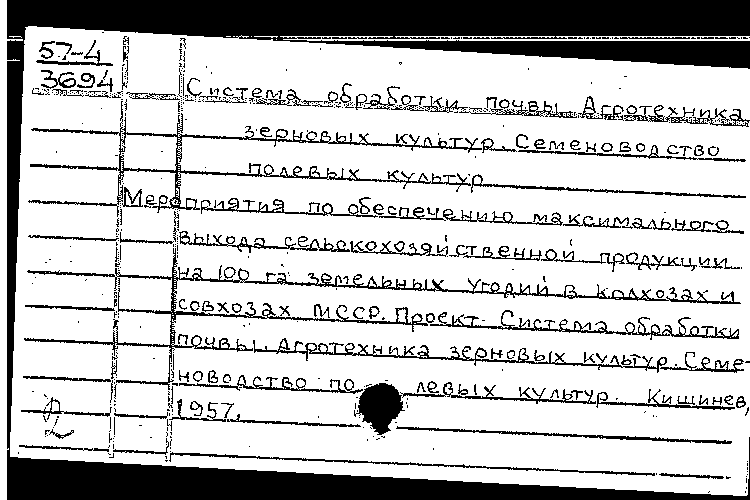 57-4
3694
Система обработки почвы. Агротехника
зерновых культур. Семеноводство
полевых культур
Мероприятия по обеспечению максимального
выхода сельскохозяйственной продукции
на 100 га земельных угодий в колхозах и
совхозах МССР. Проект. Система обработки
почвы. Агротехника зерновых культур. Семе-
новодство по левых культур. Кишинев,
1957.